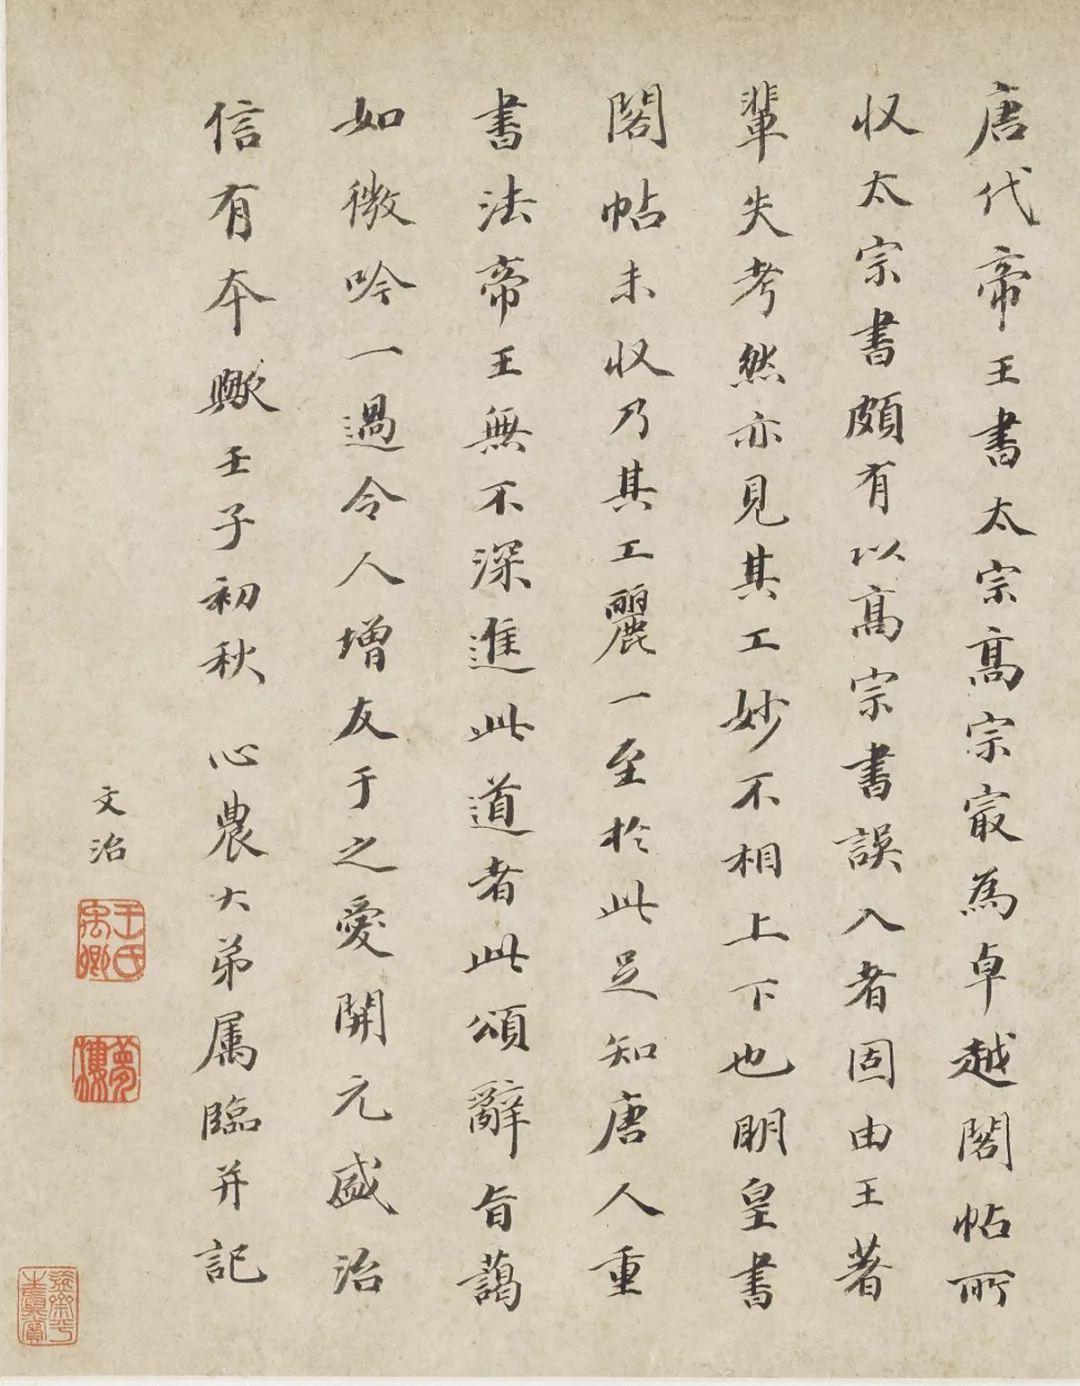 唐代帝王書太宗高宗㝡為卓越閣帖所
収太宗書頗有以髙宗書誤入者固由王著
輩失考然亦見其工妙不相上下也明皇書
閣帖未収乃其工麗一至於此足知唐人重
書法帝王無不深進此道者此頌辭旨藹
如微吟一過令人增友于之愛開元盛治
信有本歟壬子初秋 心農大弟属臨并記
文治
王氏禹卿
夢樓